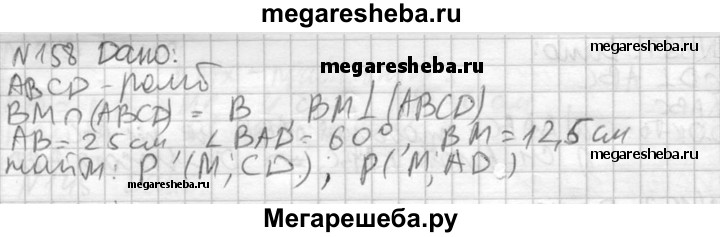 megaresheba.ru
N158 Дано:
megaresheba.ru
megaresheba.ru
ABCD - ромб
BM ∩ (ABCD) = B, BM ⊥ (ABCD)
AB = 25 см, ∠ BAD = 60°, BM = 12,5 см
megaresheba.ru
найти: P (M; CD); P (M; AD)
megaresheba.ru
Мегарешеба.ру